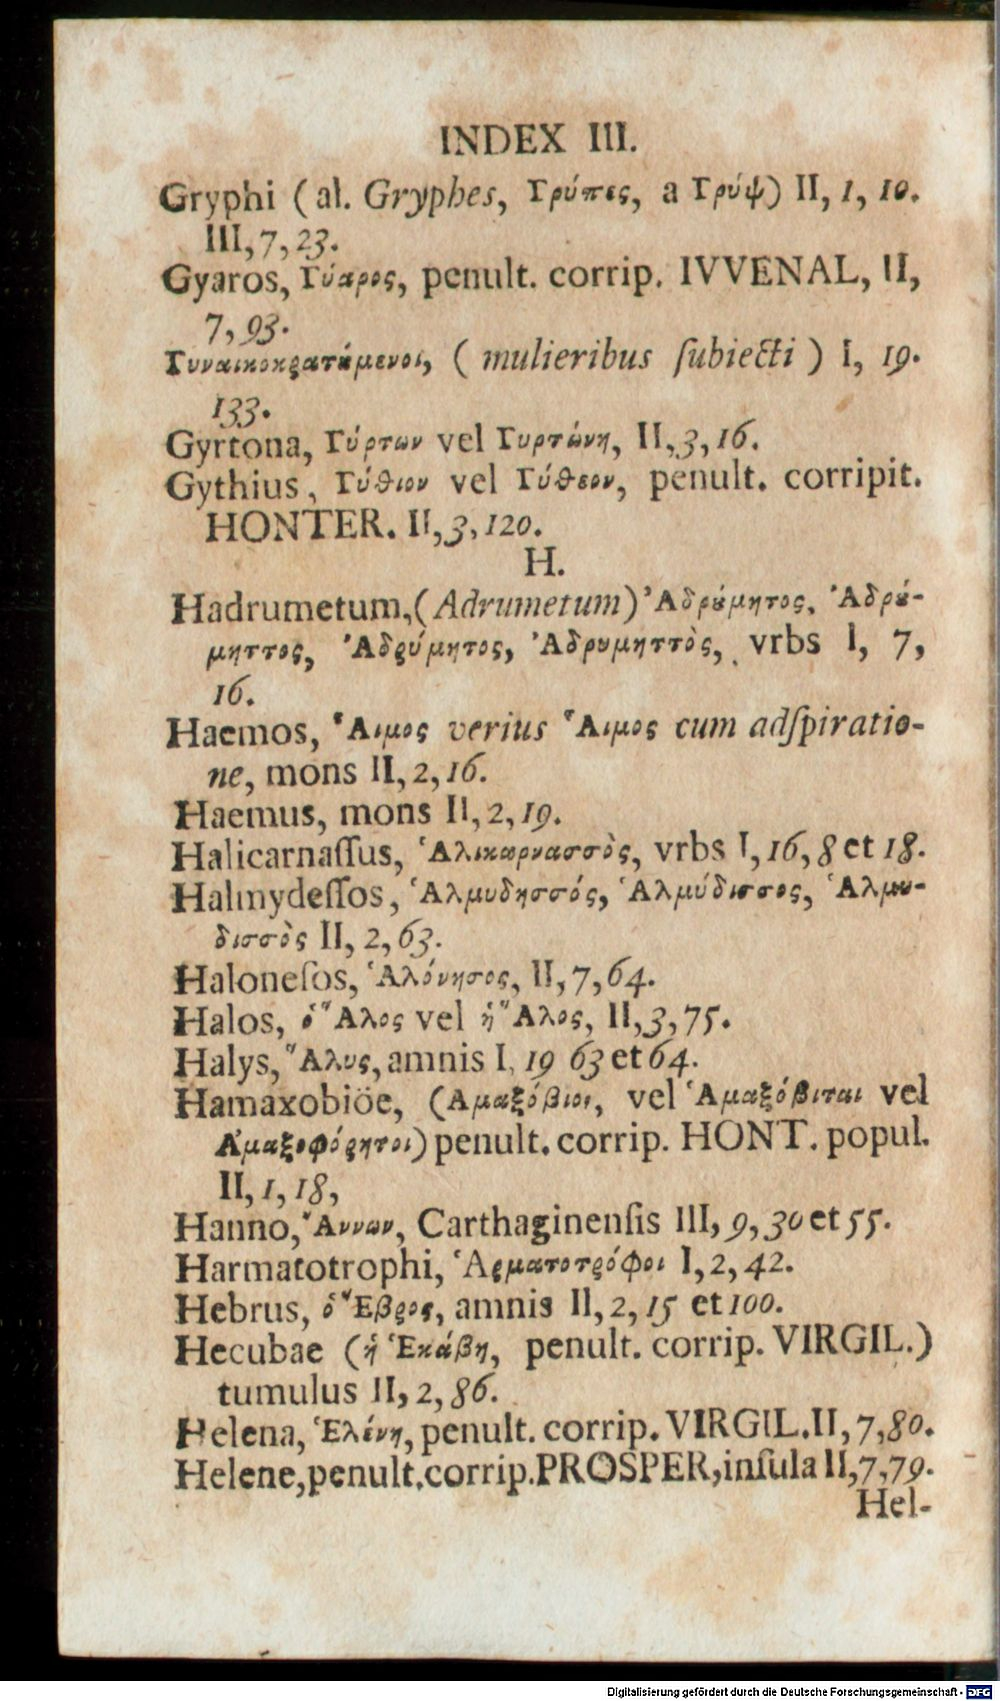 INDEX III.
Gryphi (al. Gryphes, Γρύπες, a Γρύψ) II, 1, 10.
III, 7, 23.
Gyaros, Γύαρος, penult. corrip. IVVENAL, II,
7, 93.
Γυναικοκρατȣ́μενοι, (mulieribus ſubiecti) I, 19.
133.
Gyrtona, Γύρτων vel Γυρτώνη, II, 3, 16.
Gythius, Γύθιον vel Γύθεον, penult. corripit.
HONTER. II, 3, 120.
H.
Hadrumetum, (Adrumetum) Ἀδρȣ́μητος, Ἀδρȣ́-
μηττος, Ἀδρύμητος, Ἀδρυμηττὸς, vrbs I, 7,
16.
Haemos, Ἄιμος verius Ἅιμος cum adſpiratio-
ne, mons II, 2, 16.
Haemus, mons II, 2, 19.
Halicarnaſſus, Ἁλικαρνασσὸς, vrbs I, 16, 8 et 18.
Halmydeſſos, Ἁλμυδησσός, Ἁλμύδισσος, Ἁλμυ-
δισσὸς II, 2, 63.
Haloneſos, Ἁλόνησος, II, 7, 64.
Halos, ὁ Ἅλος vel ἡ Ἅλος, II, 3, 75.
Halys, Ἅλυς, amnis I, 19 63 et 64.
Hamaxobiöe, (Αμαξόβιοι, vel Ἁμαξόβιται vel
Ἁμαξοφόρητοι) penult. corrip. HONT. popul.
II, 1, 18,
Hanno, Ἄννων, Carthaginenſis III, 9, 30 et 55.
Harmatotrophi, Ἁρματοτρόφοι I, 2, 42.
Hebrus, ὁ Ἕβρος, amnis II, 2, 15 et 100.
Hecubae (ἡ Ἑκάβη, penult. corrip. VIRGIL.)
tumulus II, 2, 86.
Helena, Ἑλένη, penult. corrip. VIRGIL. II, 7, 80.
Helene, penult. corrip. PROSPER, inſula II, 7, 79.
Hel-
Digitalisierung gefördert durch die Deutsche Forschungsgemeinschaft - DFG